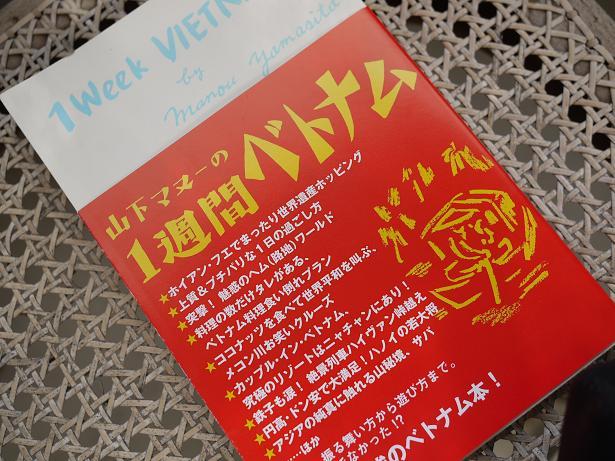 1 Week VIETN
by
Manou Yamasita
山下マヌーの
1週間ベトナム
★ホイアン・フエでまったり世界遺産ホッピング
★上質&プチパリな1日の過ごし方
★突撃!魅惑のヘム(路地)ワールド
★料理の数だけタレがある、
ベトナム料理食い倒れプラン
★ココナッツを食べて世界平和を叫ぶ、
メコン川お笑いクルーズ
★カップル・イン・ベトナム、
究極のリゾートはニャチャンにあり!
★鉄子も涙!絶景列車!ハイヴァン峠越え
★円高、ドン安で大満足!ハノイの若大将
★アジアの純真に触れる山秘境、サパ
……ほか
振る舞い方から遊び方まで。
なかった!?
のベトナム本!